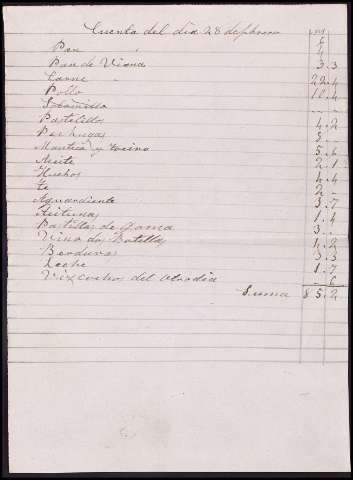 Cuenta del dia 28 de febrero
Pan 4
Pan de Viena 3.3
Carne 22.4
Pollo 10.4
Pastelillos 4.2
Pechugas 8
Manteca y tocino 5.6
Aceite 2.1
Huebos 4.4
Te 2
Aguardiente 3.7
Aritunas 1.4
Pastillas de Goma 3.
Vino dos Botellas 4.2
Berduras 3.3
Leche 1.7
Vizcochos del otro dia 6
Suma 85.2